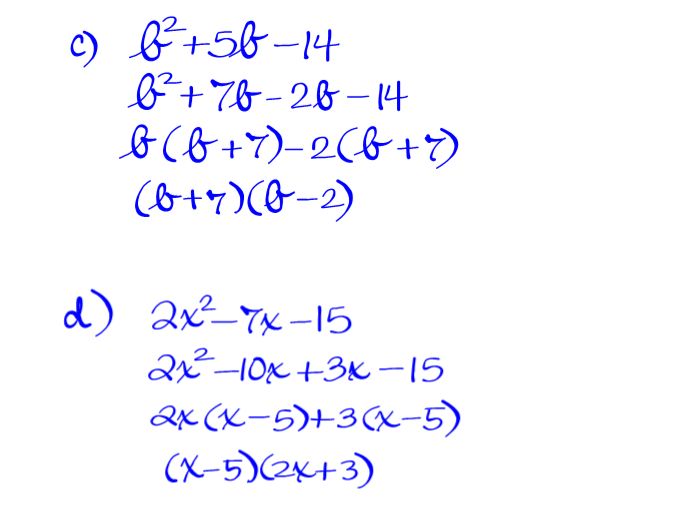 c) b²+5b-14
b²+7b-2b-14
b(b+7)-2(b+7)
(b+7)(b-2)
d) 2x²-7x-15
2x²-10x+3x-15
2x(x-5)+3(x-5)
(x-5)(2x+3)